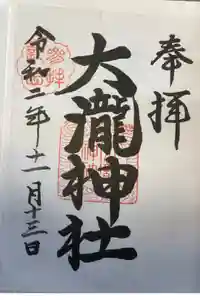 奉拝
大瀧神社
令和二年十一月十三日